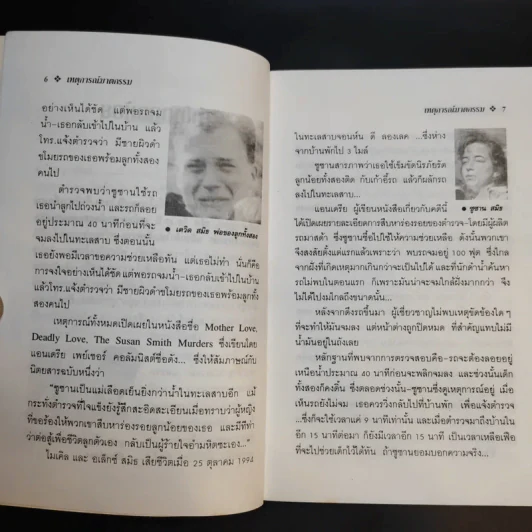 6 ❖ เหตุการณ์ฆาตกรรม
อย่างเห็นได้ชัด แต่พอรถจม
น้ำ-เธอกลับเข้าไปในบ้าน แล้ว
โทร.แจ้งตำรวจว่า มีชายผิวดำ
ขโมยรถของเธอพร้อมลูกทั้งสอง
คนไป
ตำรวจพบว่าซูซานใช้รถ
เธอนำลูกไปถ่วงน้ำ และรถก็ลอย
อยู่ประมาณ 40 นาทีก่อนที่จะ
จมลงไปในทะเลสาบ ซึ่งตอนนั้น
● เดวิด สมิธ พ่อของลูกทั้งสอง
เธอยังพอมีเวลาขอความช่วยเหลือทัน แต่เธอไม่ทำ นั่นก็คือ
การจงใจอย่างเห็นได้ชัด แต่พอรถจมน้ำ-เธอกลับเข้าไปในบ้าน
แล้วโทร.แจ้งตำรวจว่า มีชายผิวดำขโมยรถของเธอพร้อมลูกทั้ง
สองคนไป
เหตุการณ์ทั้งหมดเปิดเผยในหนังสือชื่อ Mother Love,
Deadly Love, The Susan Smith Murders ซึ่งเขียนโดย
แอนเดรีย เพย์เซอร์ คอลัมนิสต์ชื่อดัง... ซึ่งให้สัมภาษณ์กับ
นิตยสารฉบับหนึ่งว่า
"ซูซานเป็นแม่เลือดเย็นยิ่งกว่าน้ำในทะเลสาบอีก แม้
กระทั่งตำรวจที่ใจแข็งยังรู้สึกสะอิดสะเอียนเมื่อทราบว่าผู้หญิง
ที่ขอร้องให้พวกเขาสืบหาร่องรอยลูกน้อยของเธอ และมีทีท่า
ว่าต่อสู้เพื่อชีวิตลูกตัวเอง กลับเป็นผู้ร้ายใจอำมหิตซะเอง..."
ไมเคิล และ อเล็กซ์ สมิธ เสียชีวิตเมื่อ 25 ตุลาคม 1994
เหตุการณ์ฆาตกรรม ❖ 7
ในทะเลสาบจอห์น ดี ลองเลค ...ซึ่งห่าง
จากบ้านพักไป 3 ไมล์
ซูซานสารภาพว่าเธอใช้เข็มขัดนิรภัยรัด
ลูกน้อยทั้งสองติด กับเก้าอี้รถ แล้วก็ผลักรถ
ลงไปในทะเลสาบ...
● ซูซาน สมิธ
แอนเดรีย ผู้เขียนหนังสือเกี่ยวกับคดีนี้
ได้เปิดเผยรายละเอียดการสืบหาร่องรอยของตำรวจ-โดยมีผู้ผลิต
รถมาสด้า ซึ่งซูซานซื้อไปใช้ให้ความช่วยเหลือ ดังนั้นพวกเขา
จึงสงสัยตั้งแต่แรกแล้วเพราะว่า พบรถจมอยู่ 100 ฟุต ซึ่งไกล
จากฝั่งที่เกิดเหตุมากเกินกว่าจะเป็นไปได้ และที่นักดำน้ำค้นหา
รถไม่พบในตอนแรก ก็เพราะมันน่าจะจมใกล้ฝั่งมากกว่า จึง
ไม่ได้ไปงมไกลถึงขนาดนั้น...
หลังจากดึงรถขึ้นมา ผู้เชี่ยวชาญไม่พบเหตุขัดข้องใด ๆ
ที่จะทำให้มันจมลง แต่หน้าต่างถูกปิดหมด ที่สำคัญแทบไม่มี
น้ำมันอยู่ในถังเลย
หลักฐานที่พบจากการตรวจสอบคือ-รถจะต้องลอยอยู่
เหนือน้ำประมาณ 40 นาทีก่อนจะพลิกจมลง และช่วงนั้นเด็ก
ทั้งสองก็คงดิ้น ซึ่งตลอดช่วงนั้น-ซูซานซึ่งดูเหตุการณ์อยู่ เมื่อ
เห็นรถยังไม่จม เธอควรวิ่งกลับไปที่บ้านพัก เพื่อแจ้งตำรวจ
...ซึ่งก็จะใช้เวลาแค่ 9 นาทีเท่านั้น และเมื่อตำรวจมาถึงบ้านใน
อีก 15 นาทีต่อมา ก็ยังมีเวลาอีก 15 นาที เป็นเวลาเหลือเฟือ
ที่จะไปช่วยเด็กไว้ได้ทัน ถ้าซูซานยอมบอกความจริง...